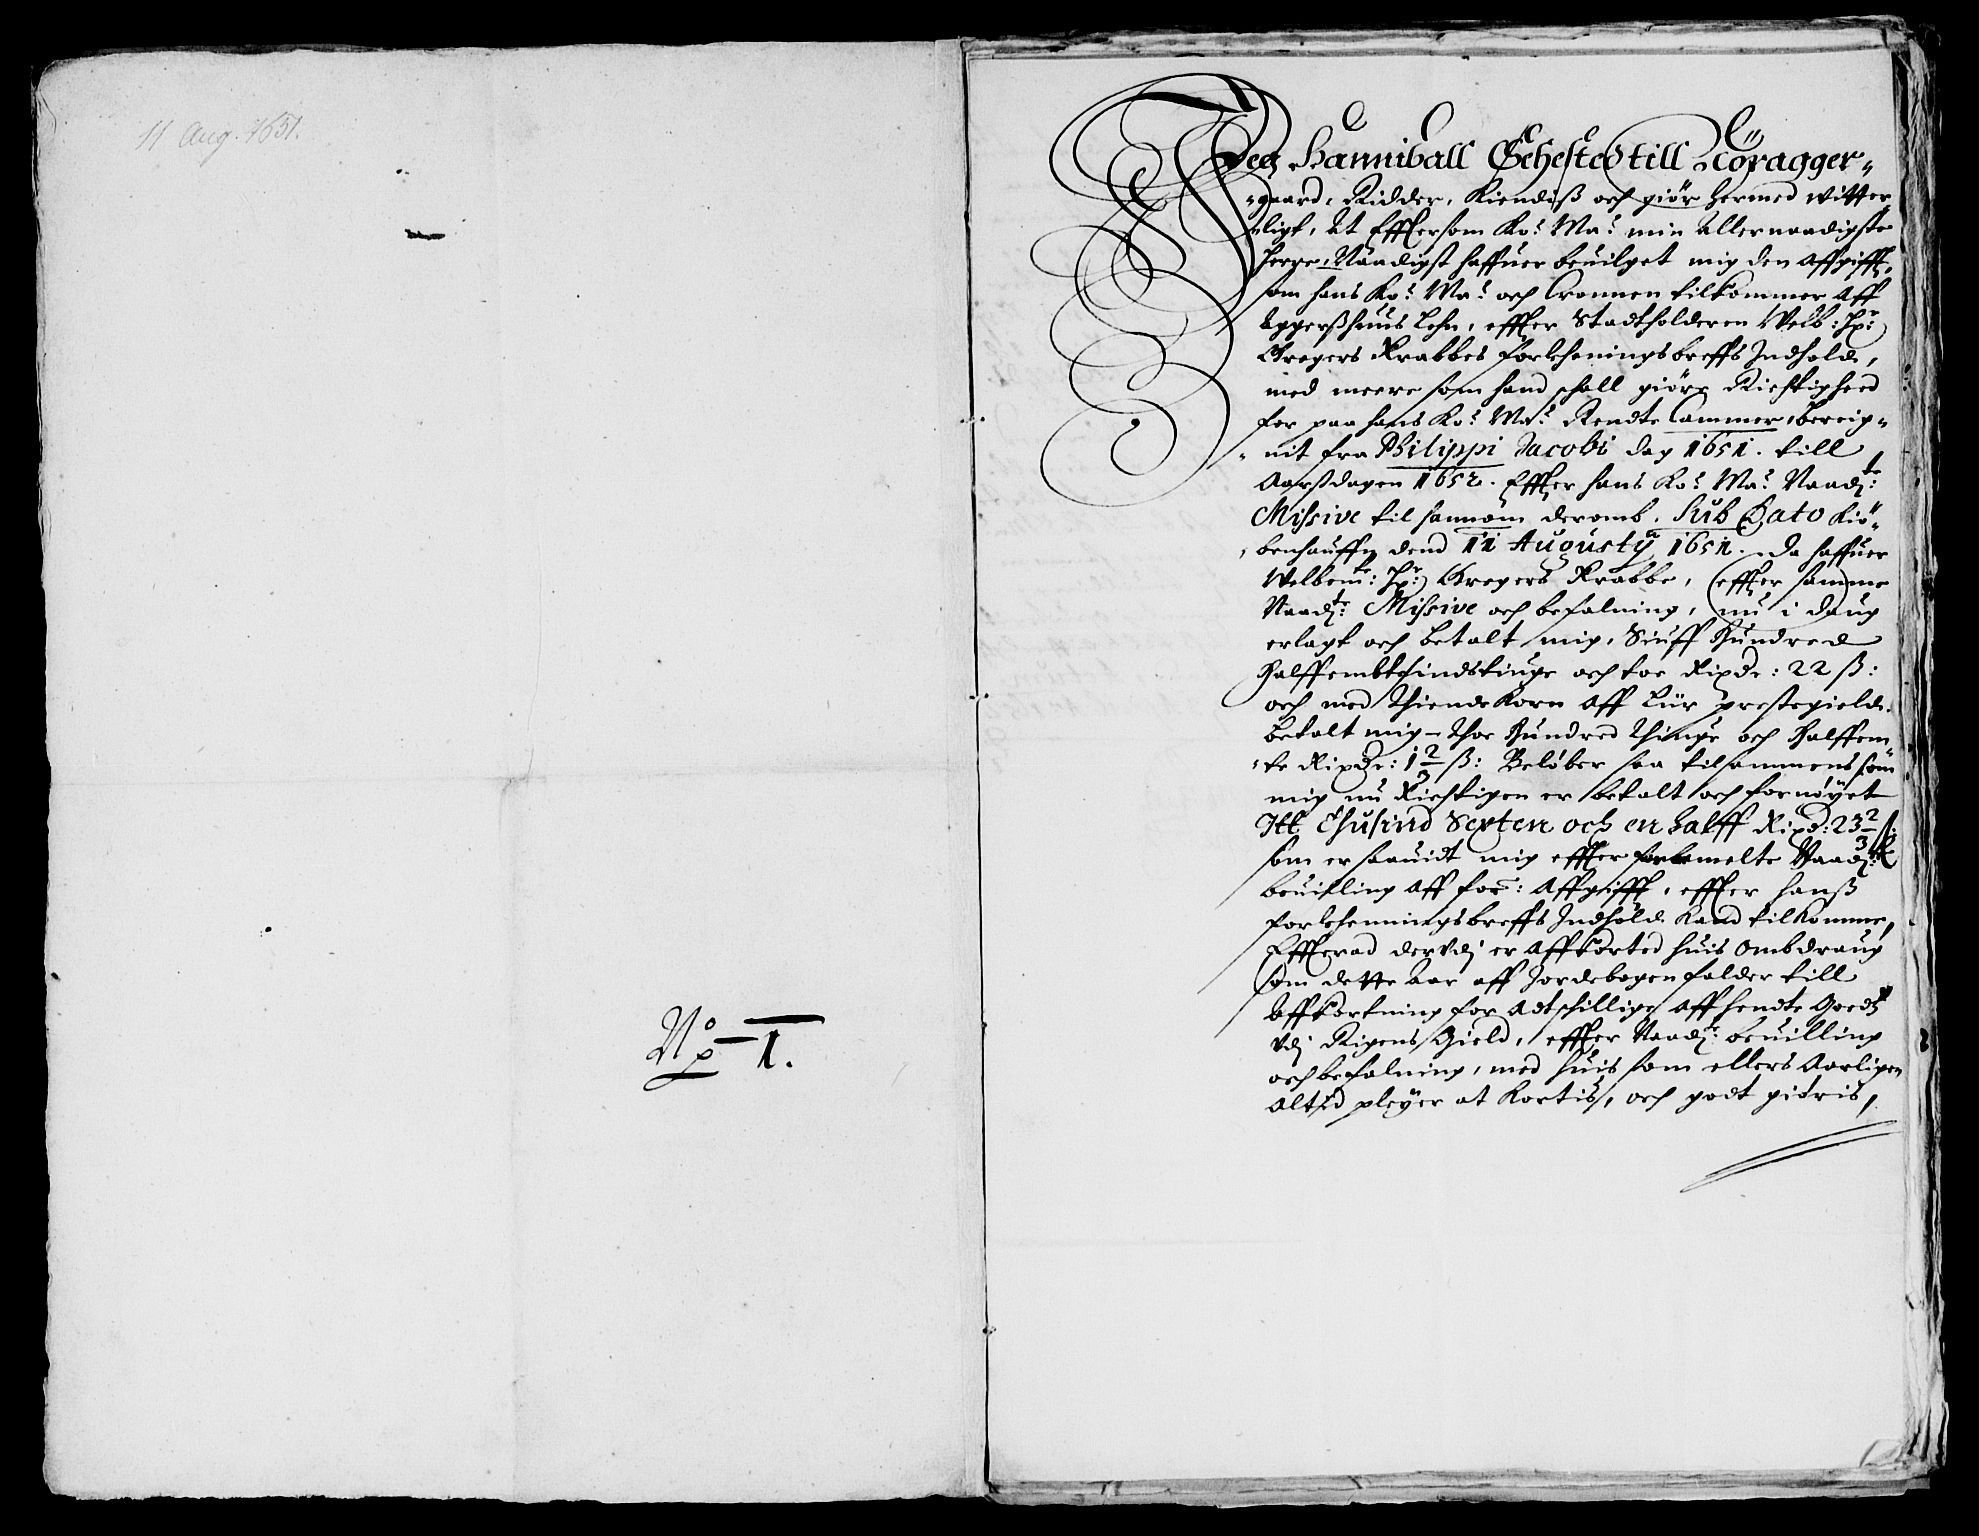 11 Aug. 1651.
No 1.
Jeg Hanniball Sehested till Nöragger¬
gaard, Ridder, Kiendiß och giör hermed witter¬
ligt, At Effttersom Ko: Ma: min Allernaadigste
Herre, Naadigst haffuer beuilget mig den Affgifft,
som hans Ko: Ma: och Cronnen tilkommer Aff
Aggerßhuus Lehn, effter Stadtholderen Welb: Hr:
Gregers Krabbes forlehningsbreffs Indhold,
med meere som hand schall giöre Richtigheed
for paa hans Ko: Ma: Rendte Cammer, bereig¬
nit fra Philippi Jacobi dag 1651. till
Aarßdagen 1652. Effter hans Ko: Ma: Naad:te
Missive til hannom deromb, Sub Dato Kiö¬
benhauffn dend 11 Augustij 1651. Da haffuer
Welbem:te Hr: Gregers Krabbe, effter samme
Naad:te Missive och befalning, nu i daug
erlagt och betalt mig, Siuff Hundred
Halffembtsindstiuge och toe Rixdr: 22 ß:
och med thiende Korn aff Lür prestegield
betalt mig Thoe Hundred Thiuge och Halffem¬
te Rixdr: 1 2/3 ß: Beløber saa tilsammens som
mig nu Richtigen er betalt och fornøyet
Itt Thusind Sexten och en halff Rixd: 23 2/3 ß:
som er saauidt mig effter forbemelte Naad:te
beuilling aff for: Affgifft, effter hanß
forlehenningsbreffs Indhold Kand tilkomme,
Effterad derudj er Affkorted huis ombdraug
som dette Aar aff Jordebogen falder till
Affkortning for Adtschillige affhendte Goeds
udj Rigens Gield, effter Naad:te beuilling
och befalning, med huis som ellers Aarligen
Altid pleyer at Kortis, och godt giöris,